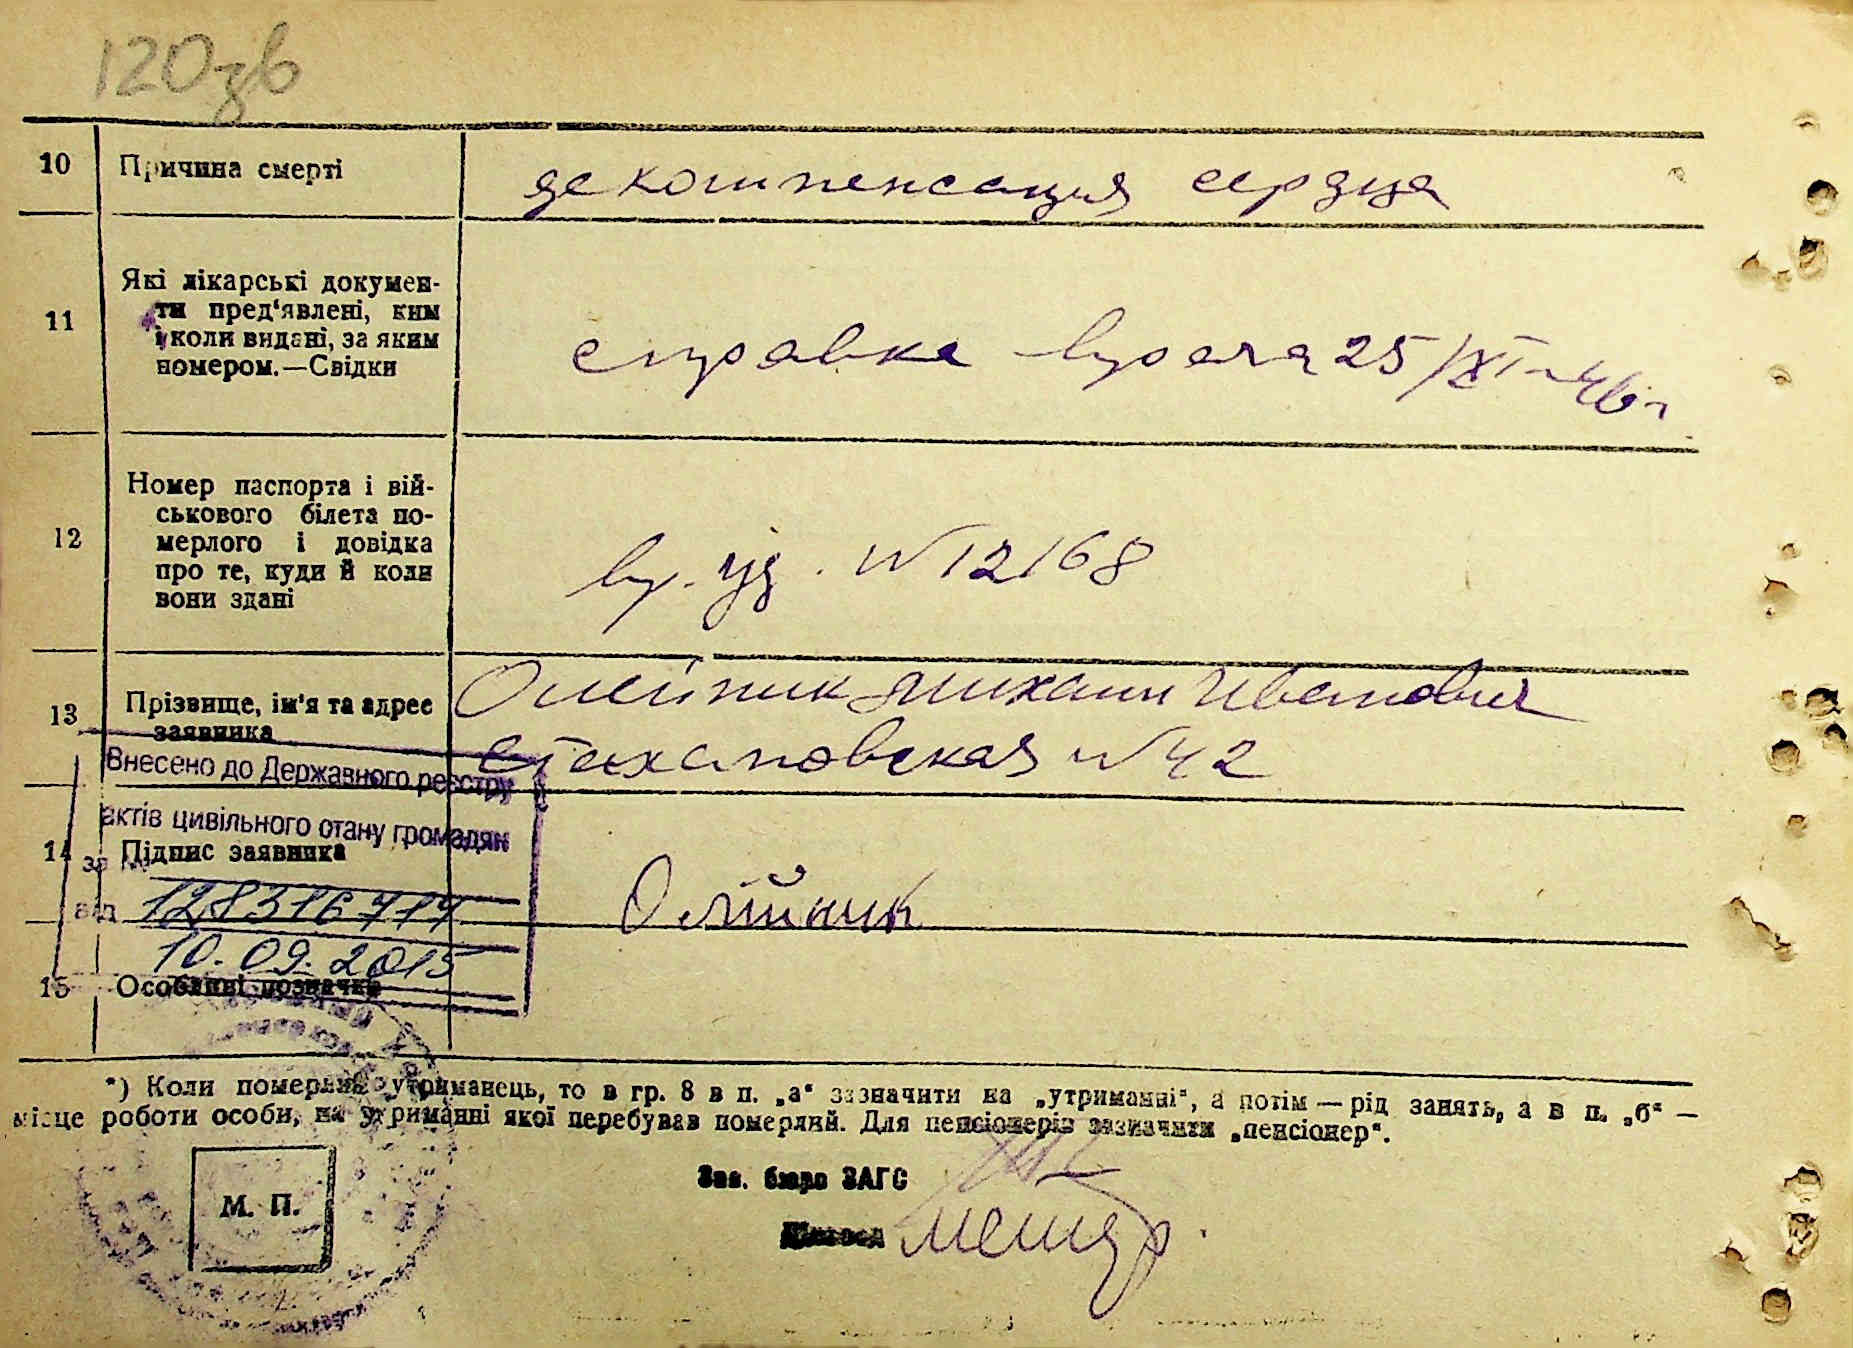 120зв
10 Причина смерті декомпенсация сердца
11 Які лікарські докумен-
ти пред'явлені, ким
і коли видані, за яким
номером.—Свідки
справка врача 25/XI-46 г
12 Номер паспорта і вій-
ськового білета по-
мерлого і довідка
про те, куди й коли
вони здані
вр. уд. N 12168
13 Прізвище, ім'я та адрес
заявника
Олейник Михаил Иванович
Стахановская N 42
Внесено до Державного реєстру
актів цивільного стану громадян
14 Підпис заявника Олійник
за №
128316717
від
10.09.2015
15 Особливі позначки
*) Коли померлий утриманець, то в гр. 8 в п. „а“ зазначити на „утриманні“, а потім — рід занять, а в п. „б“ —
місце роботи особи, на утриманні якої перебував померлий. Для пенсіонерів зазначити „пенсіонер“.
М. П.
Зав. бюро ЗАГС
Діловод